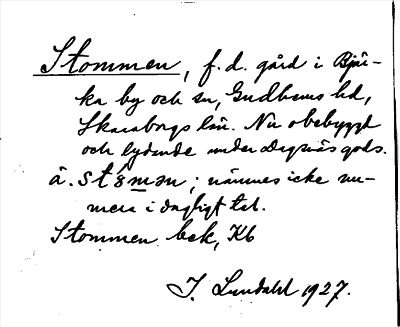 Stommen, f. d. gård i Bjür-
ka by och sn, Gudhems hd,
Skaraborgs län. Nu obebyggt
och lydande under Degnäs gods.
å. stȯmən; nämnes icke nu-
mera i dagligt tal.
Stommen bek, Kb
J. Lundahl 1927.